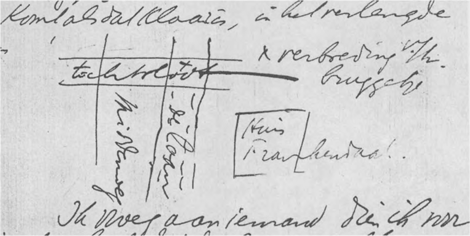 Kom [als dat] klaar is, in het verlengde
x verbreding v/h
bruggetje
tochtsloot
Middenweg
Huis
Frankendaal.
Ik vroeg aan iemand die ik